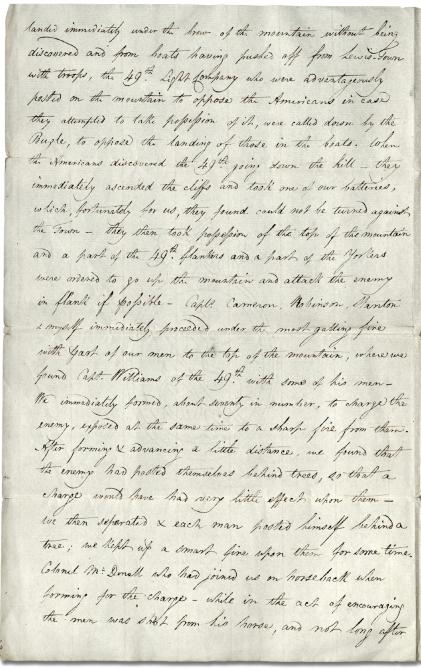 landed immediately under the brow of the mountain without being
discovered and from boats having pushed off from Lewis-Town
with troops, the 49th. Light Company who were advantageously
posted on the mountain to oppose the Americans in case
they attempted to take possession of it, were called down by the
Bugle, to oppose the landing of those in the boats. When
the Americans discovered the 49th going down the hill – they
immediately ascended the cliffs and took one of our batteries,
which, fortunately for us, they found could not be turned against
the Town – they then took possession of the top of the mountain
and a part of the 49th. flankers and a part of the Yorkers
were ordered to go up the mountain and attack the enemy
in flank if possible – Capts. Cameron Robinson, Stanton
& myself immediately proceeded under the most galling fire
with part of our men to the top of the mountain, where we
found Capt. Williams of the 49.th with some of his men –
We immediately formed, about seventy in number, to charge the
enemy, exposed at the same time to a sharp fire from them.
After forming & advancing a little distance, we found that
the enemy had posted themselves behind trees, so that a
charge would have had very little effect upon them –
we then separated & each man posted himself behind a
tree; we kept up a smart fire upon them for some time.
Colonel Mc. Donell who had joined us on horseback when
forming for the charge – while in the act of encouraging
the men was shot from his horse, and not long after